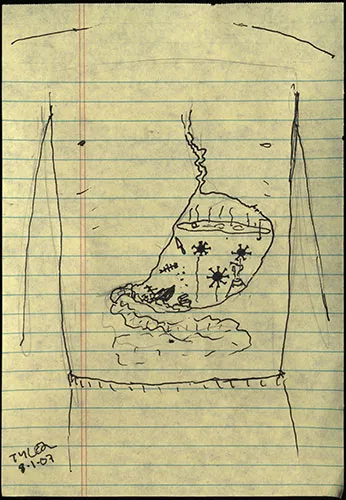 TYLER
8-1-07